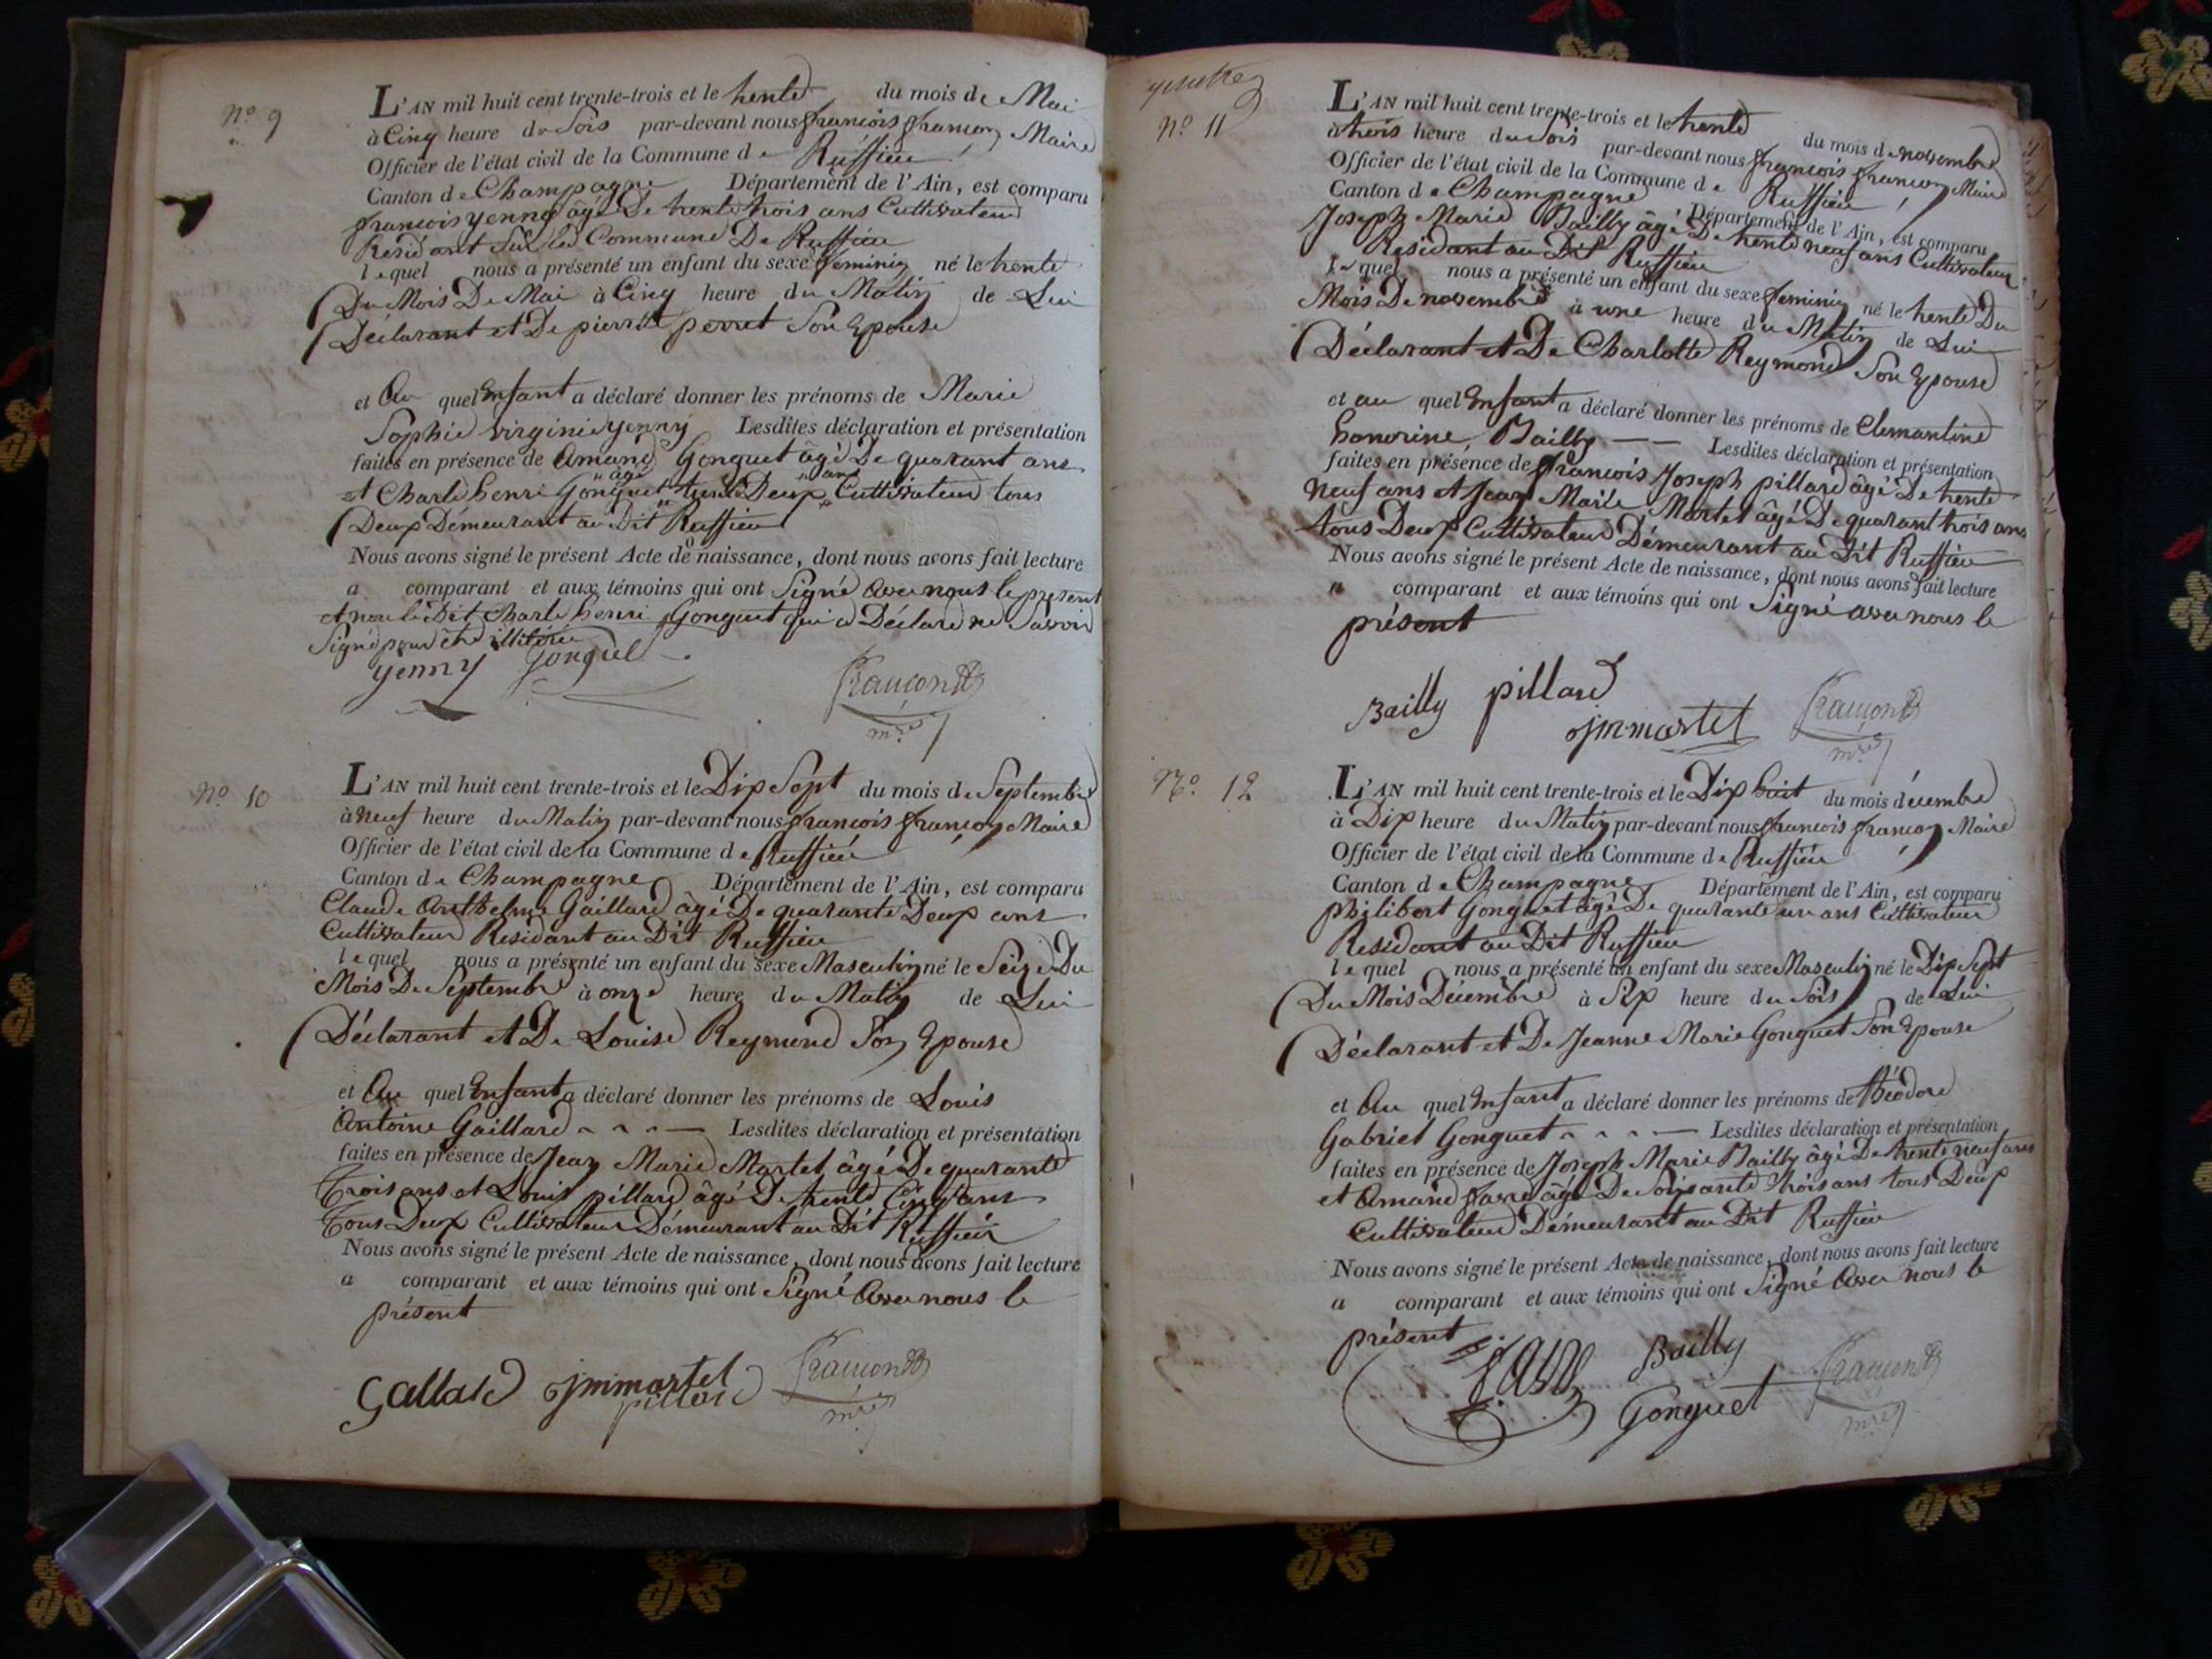 N.o 9
L'AN mil huit cent trente-trois et le trente du mois de Mai
à Cinq heure du Soir par-devant nous francois françon Maire
Officier de l'état civil de la Commune de Ruffieu
Canton de Champagne Département de l'Ain, est comparu
francois yenny âgé De trente trois ans Cultivateur
Residant Sur la Commune De Ruffieu
lequel nous a présenté un enfant du sexe feminin né le trente
Du Mois De Mai à Cinq heure du Matin de Lui
Déclarant et De pierrette perret Son Epouse
et Au quel Enfant a déclaré donner les prénoms de Marie
Sophie virginie yenny Lesdites déclaration et présentation
faites en présence de Amand Gonguet âgé De quarant ans
et Charle henri Gonguet âgé trente Deux ans Cultivateur tous
Deux Démeurant au Dit Ruffieu
Nous avons signé le présent Acte de naissance, dont nous avons fait lecture
a comparant et aux témoins qui ont Signé avec nous le present
et non le Dit Charle henri Gonguet qui a Déclaré ne Savoir
Signé pour être illitérée
yenny Gonguet
françon
mre
N.o 10
L'AN mil huit cent trente-trois et le Dix Sept du mois de Septembre
à neuf heure du Matin par-devant nous francois françon Maire
Officier de l'état civil de la Commune de Ruffieu
Canton de Champagne Département de l'Ain, est comparu
Claude Anthelme Gaillard âgé De quarante Deux ans
Cultivateur Residant au Dit Ruffieu
lequel nous a présenté un enfant du sexe Masculin né le Seize Du
Mois De Septembre à onze heure du Matin de Lui
Déclarant et De Louise Reymond Son Epouse
et Au quel Enfant a déclaré donner les prénoms de Louis
Antoine Gaillard Lesdites déclaration et présentation
faites en présence de Jean Marie Martel âgé De quarante
Trois ans et Louis pillard âgé De trente Cinq ans
Tous Deux Cultivateur Démeurant au Dit Ruffieu
Nous avons signé le présent Acte de naissance, dont nous avons fait lecture
a comparant et aux témoins qui ont Signé Avec nous le
présent
Gallard jm martel
pillard
françon
mre
N.o 11
L'AN mil huit cent trente-trois et le trente du mois de novembre
à trois heure du Soir par-devant nous francois françon Maire
Officier de l'état civil de la Commune de Ruffieu
Canton de Champagne Département de l'Ain, est comparu
Joseph Marie Bailly âgé De trente neuf ans Cultivateur
Residant au Dit Ruffieu
lequel nous a présenté un enfant du sexe feminin né le trente Du
Mois De novembre à une heure du Matin de Lui
Déclarant et De Charlotte Reymond Son Epouse
et au quel Enfant a déclaré donner les prénoms de Clemantine
honorine Bailly Lesdites déclaration et présentation
faites en présence de francois Joseph pillard âgé De trente
neuf ans et Jean Marie Martel âgé De quarant trois ans
tous Deux Cultivateur Démeurant au Dit Ruffieu
Nous avons signé le présent Acte de naissance, dont nous avons fait lecture
a comparant et aux témoins qui ont Signé avec nous le
présent
Bailly pillard
jm martel
françon
mre
N.o 12
L'AN mil huit cent trente-trois et le Dix huit du mois décembre
à Dix heure du Matin par-devant nous francois françon Maire
Officier de l'état civil de la Commune de Ruffieu
Canton de Champagne Département de l'Ain, est comparu
philibert Gonguet âgé De quarante un ans Cultivateur
Residant au Dit Ruffieu
lequel nous a présenté un enfant du sexe Masculin né le Dix Sept
Du Mois Décembre à Six heure du Soir de Lui
Déclarant et De Jeanne Marie Gonguet Son Epouse
et Au quel Enfant a déclaré donner les prénoms de théodore
Gabriel Gonguet Lesdites déclaration et présentation
faites en présence de Joseph Marie Bailly âgé De trente neuf ans
et Amand favre âgé De Soixante trois ans tous Deux
Cultivateur Démeurant au Dit Ruffieu
Nous avons signé le présent Acte de naissance, dont nous avons fait lecture
a comparant et aux témoins qui ont Signé Avec nous le
présent
Bailly
Gonguet
françon
mre